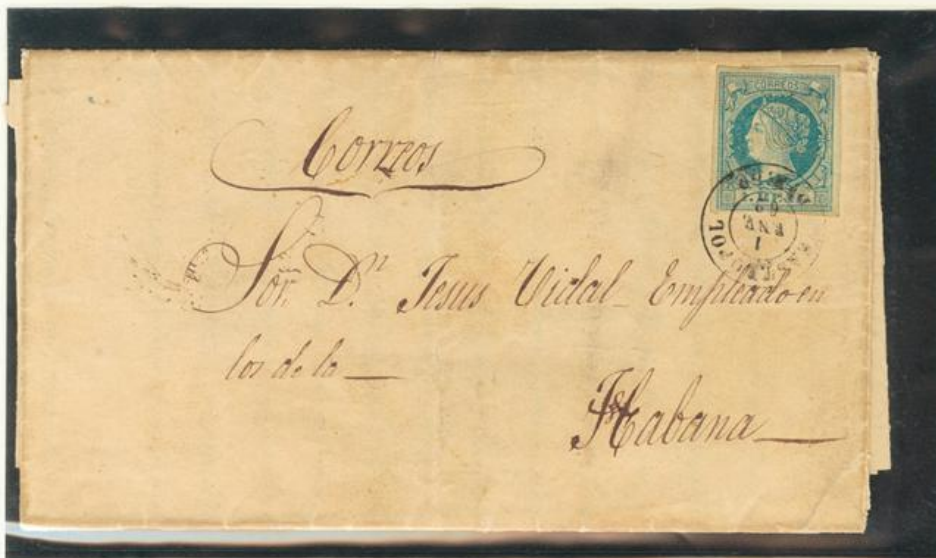 CORREOS
Correos
1
ENE
60
Sor. Dn. Jesus Vidal Empleado en
los de la
Habana